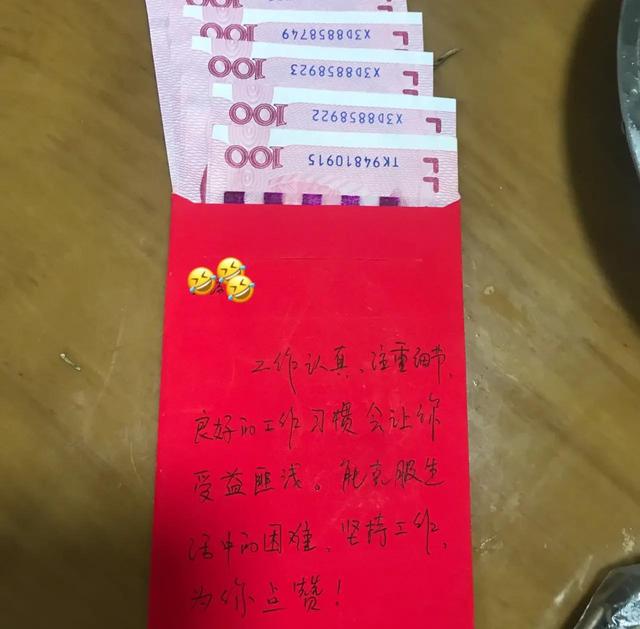 X3D8858749
100
X3D8858923
100
X3D8858922
100
TK94810915
100
工作认真、注重细节、
良好的工作习惯会让你
受益匪浅。能克服生
活中的困难、坚持工作，
为你点赞！